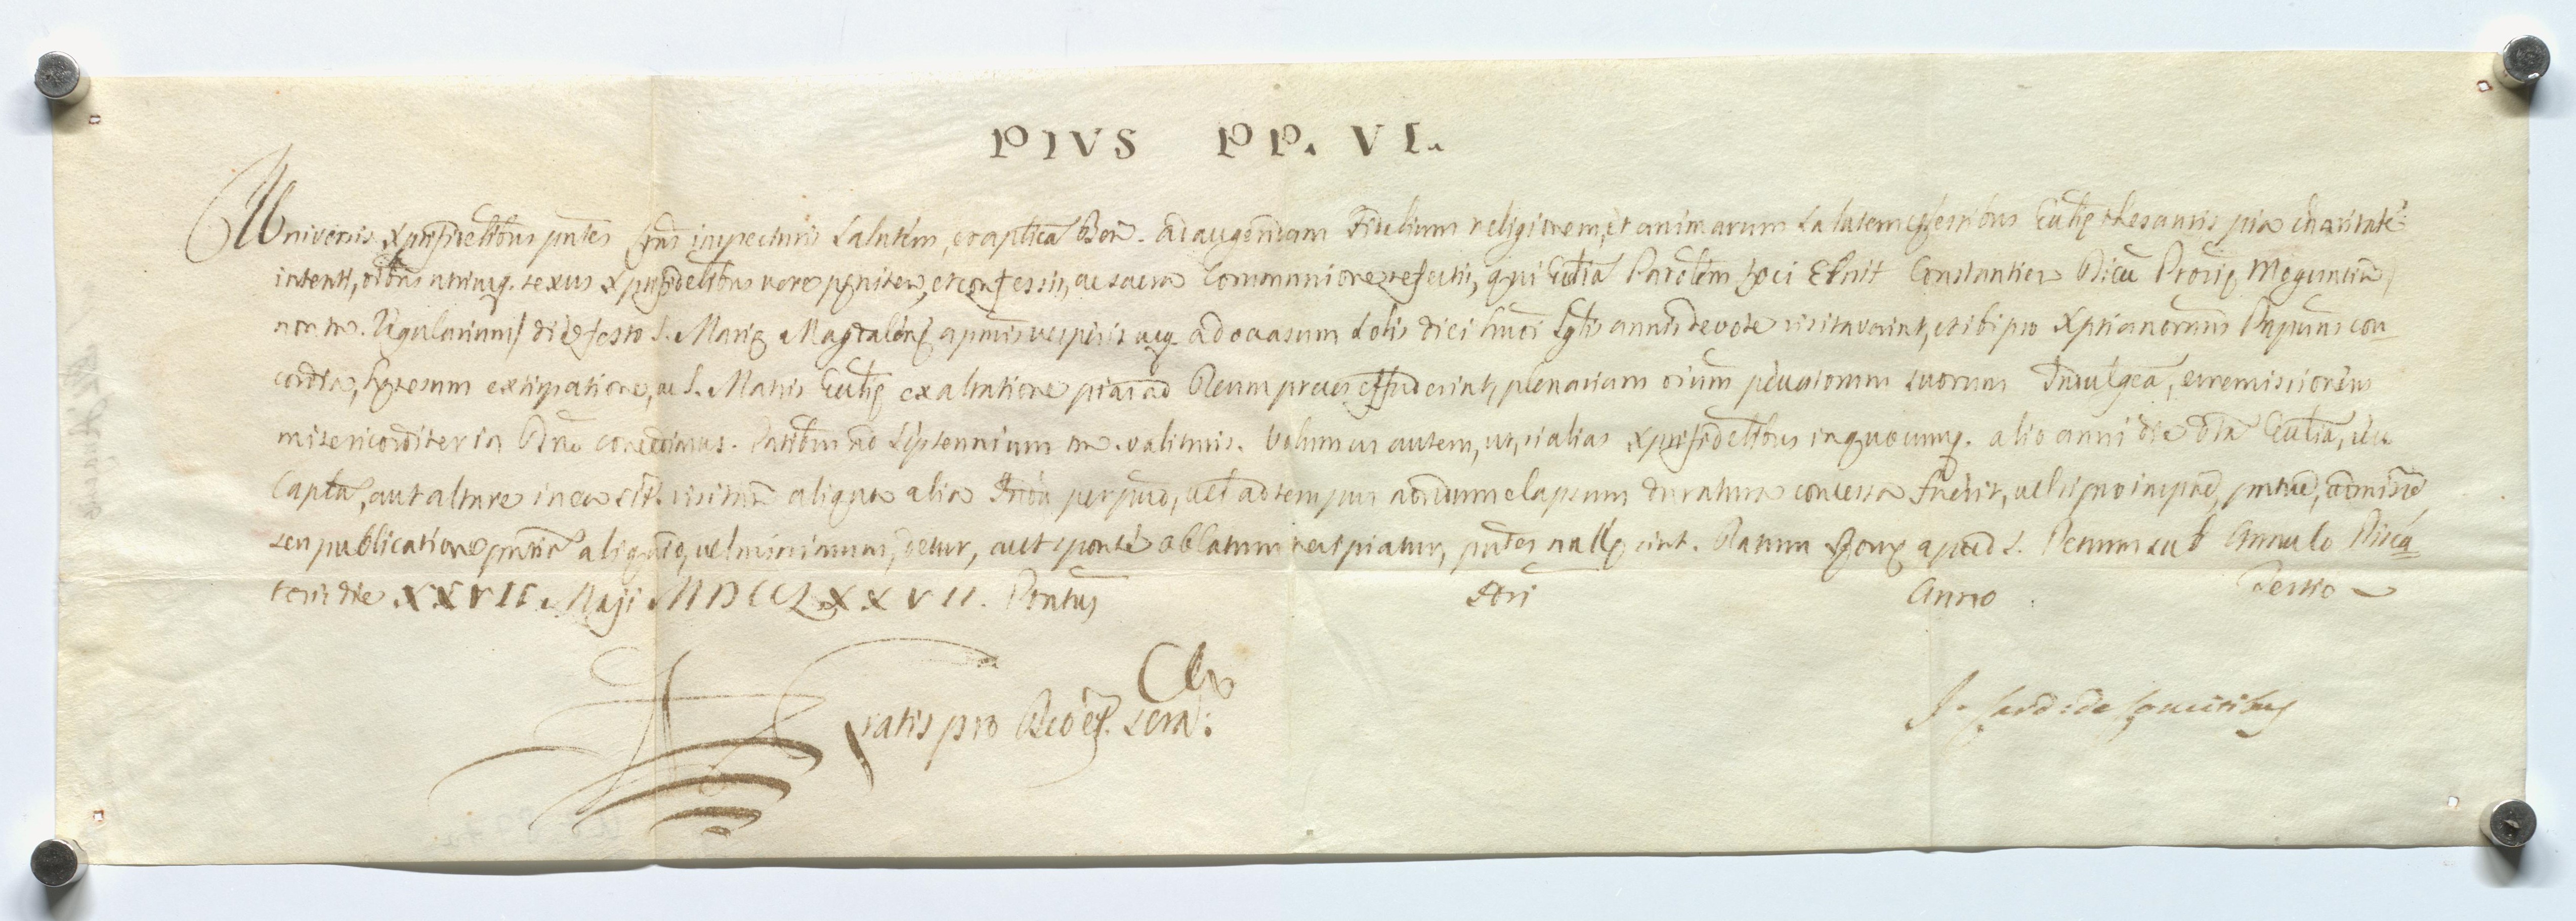 PIVS PP. VI.
Universis Xpifidelibus pntes Lras inspecturis Salutem, et aplicā Ben. Ad augendam Fidelium religionem, et animarum salutem celestibus Ecclie thesauris pia charitate
intenti, oibus utriusq. sexus Xpifidelibus vere peniten, et confessis, ac sacra Communione refectis, qui Eccliā Parolem Loci Ebnit Constantien Dicū Provię Moguntin
non tn. Regularium/ die festo S. Marię Magdalenę a primis vesperis usq. ad occasum Solis diei hmoi sglis annis devote visitaverint, et ibi pro Xptianorum Prpum con
cordia, hęresum extirpatione, ac S. Matris Ecclię exaltatione pias ad Deum preces effuderint, plenariam oium peccatorum suorum Indulgeā, et remissionem
misericorditer in Dno concedimus. Pntibus ad Septennium tn. valituris. Volumus autem, ut, si alias Xpifidelibus in quocumq. alio anni die dtā Eccliā, seu
Caplā, aut altare in ea sit. visitan aliqua alia Indu perpuo, vel ad tempus nondum elapsum duratura concessa fuerit, vel si pro impne, pntne, admissie
seu publicatione pntiū aliquid, vel minimum, detur, aut sponte oblatum recipiatur, pntes nullę sint. Datum Romę apud S. Petrum sub Annulo Pisca
toris die XXVII. Maji MDCCLXXVII. Pontus Nri Anno Tertio
Gratis pro Deo et scra.